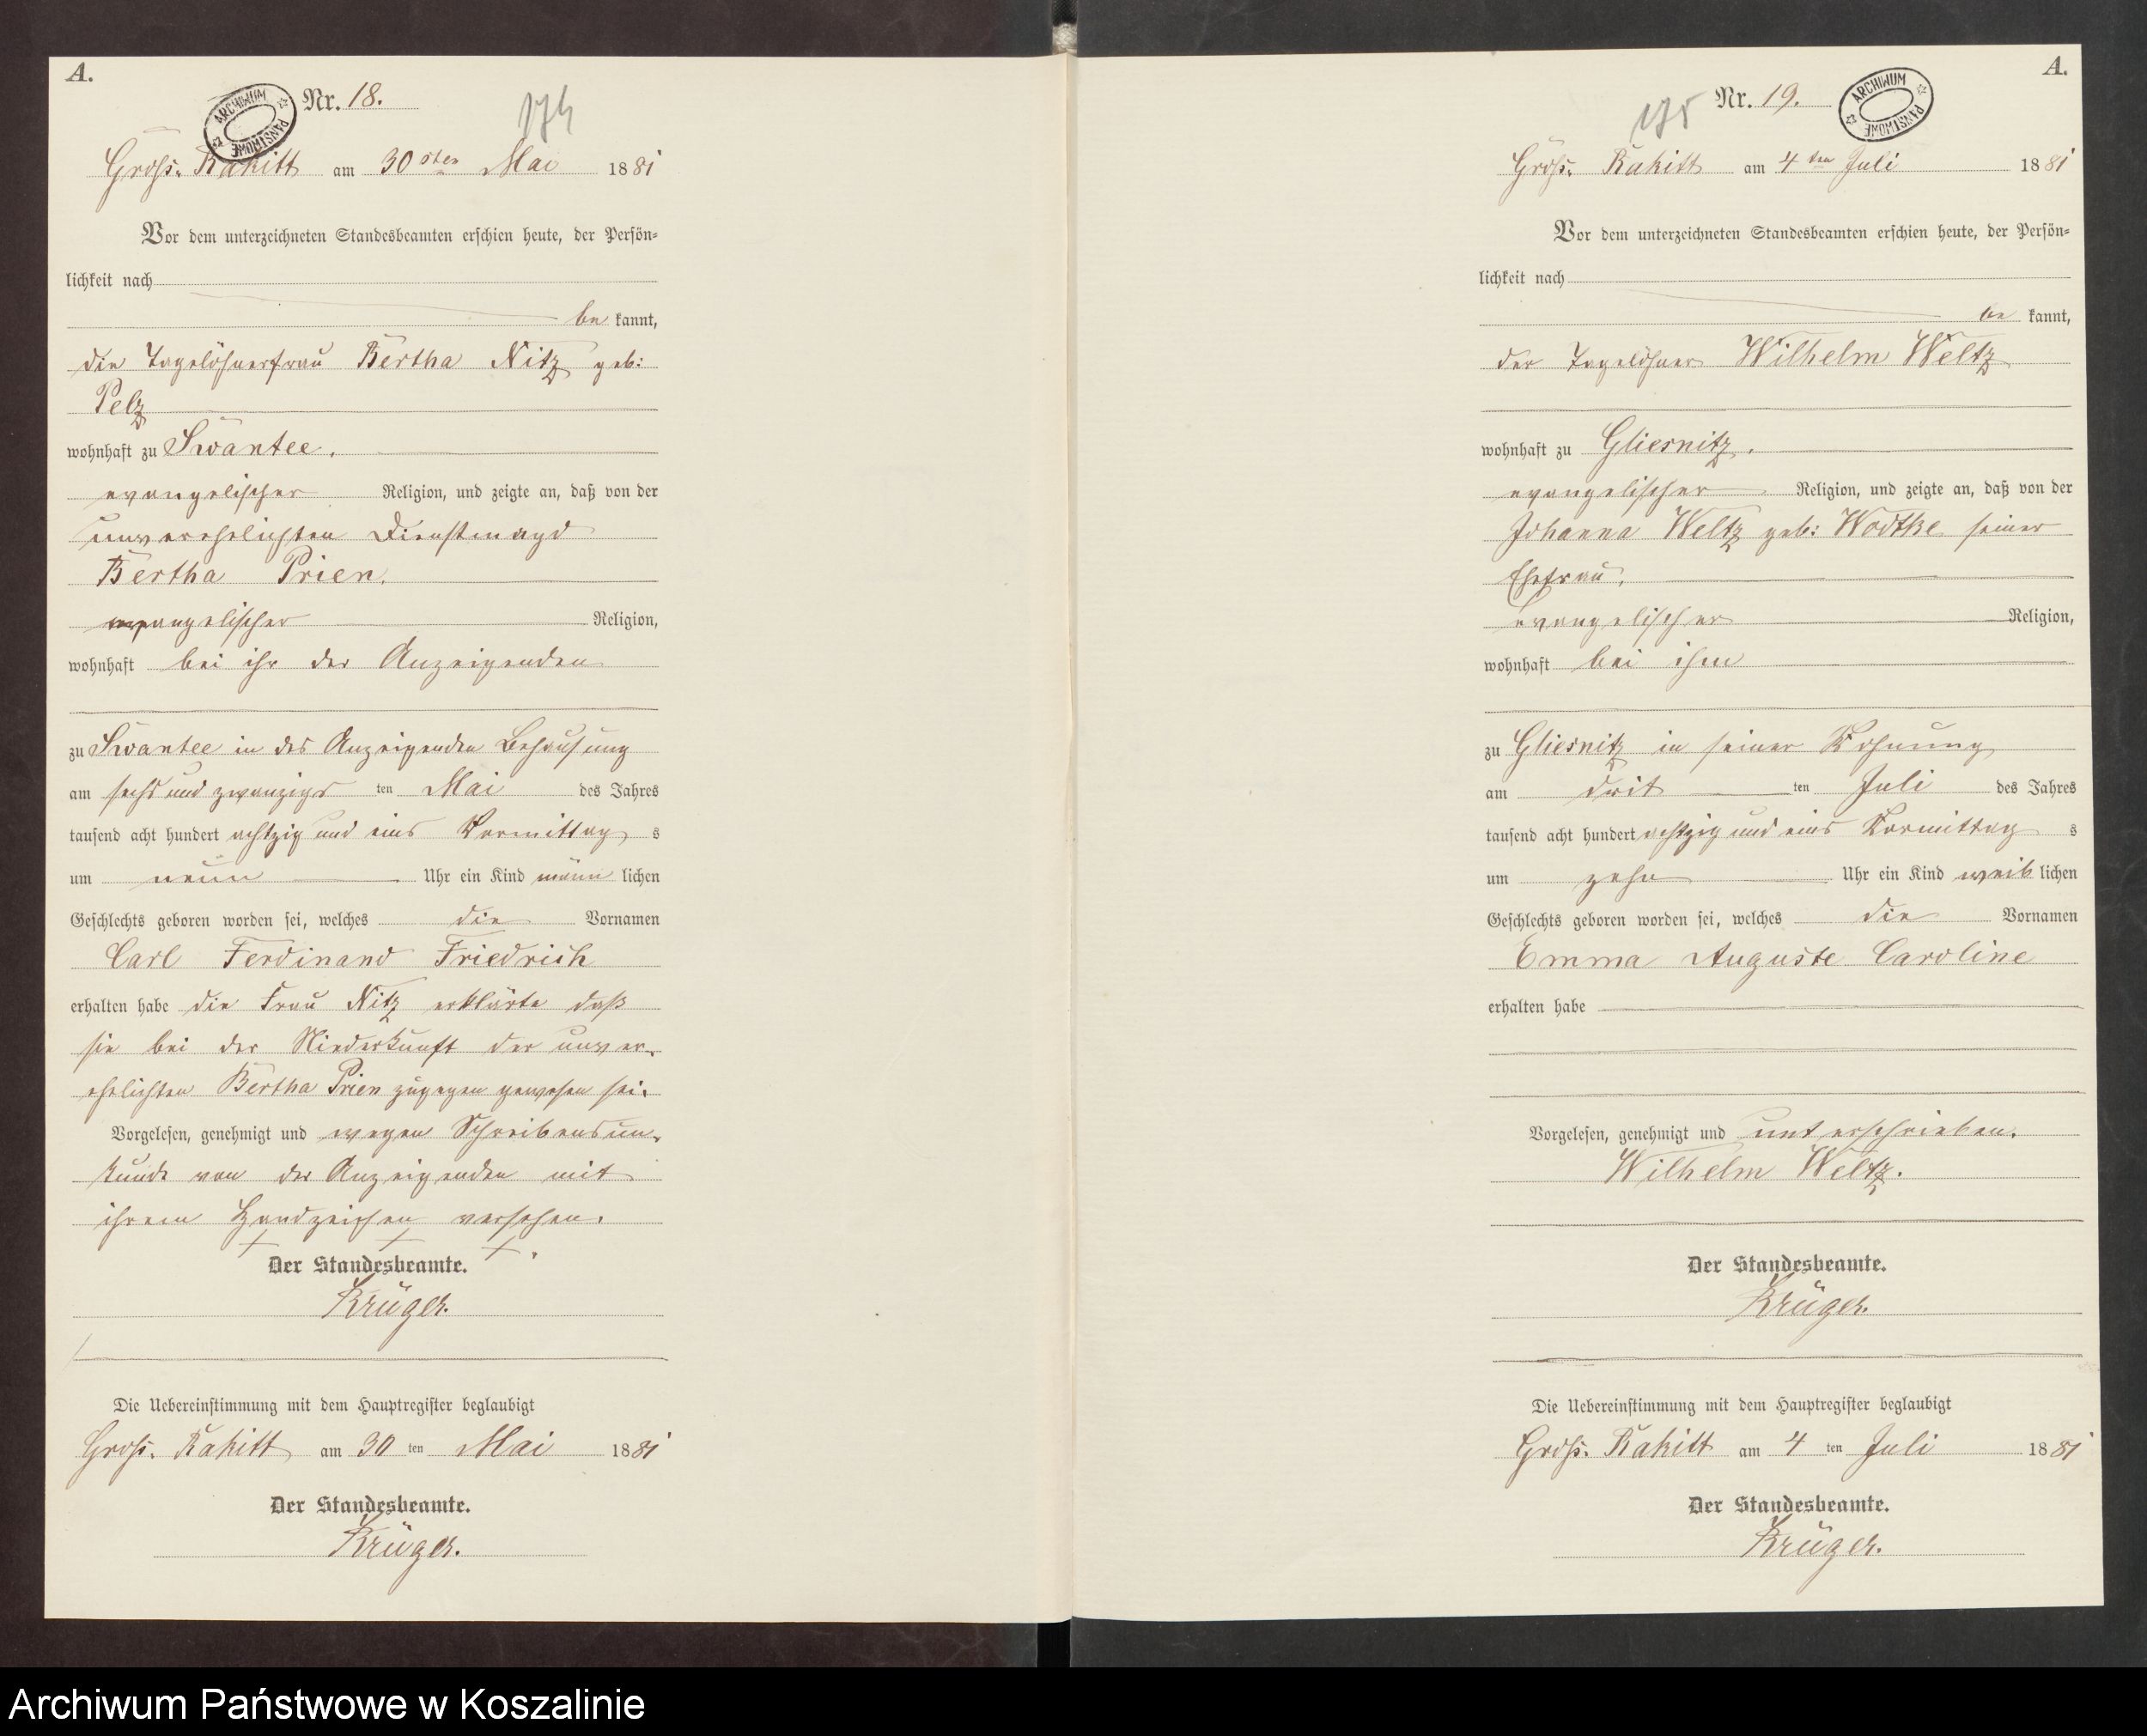 A.
ARCHIWUM PAŃSTWOWE
Nr. 18.
174
Groß. Rakitt am 30sten Mai 1881
Vor dem unterzeichneten Standesbeamten erschien heute, der Persön-
lichkeit nach
be kannt,
die Tagelöhnerfrau Bertha Nitz geb:
Pelz
wohnhaft zu Swantee.
evangelischer Religion, und zeigte an, daß von der
unverehelichten Dienstmagd
Bertha Prien,
evangelischer Religion,
wohnhaft bei ihr der Anzeigenden
zu Swantee in der Anzeigenden Behausung
am sechs und zwanzigs ten Mai des Jahres
tausend acht hundert achtzig und eins Vormittag s
um neun Uhr ein Kind männ lichen
Geschlechts geboren worden sei, welches die Vornamen
Carl Ferdinand Friedrich
erhalten habe die Frau Nitz erklärte daß
sie bei der Niederkunft der unver-
ehelichten Bertha Prien zugegen gewesen sei.
Vorgelesen, genehmigt und wegen Schreibensun-
kunde von der Anzeigenden mit
ihrem Handzeichen versehen.
+ + +.
Der Standesbeamte.
Krüger.
Die Uebereinstimmung mit dem Hauptregister beglaubigt
Groß. Rakitt am 30 ten Mai 1881
Der Standesbeamte.
Krüger.
A.
ARCHIWUM PAŃSTWOWE
Nr. 19.
175
Groß. Rakitt am 4ten Juli 1881
Vor dem unterzeichneten Standesbeamten erschien heute, der Persön-
lichkeit nach
be kannt,
der Tagelöhner Wilhelm Weltz
wohnhaft zu Gliesnitz.
evangelischer Religion, und zeigte an, daß von der
Johanna Weltz geb: Wodtke seiner
Ehefrau,
evangelischer Religion,
wohnhaft bei ihm
zu Gliesnitz in seiner Wohnung
am drit ten Juli des Jahres
tausend acht hundert achtzig und eins Vormittag s
um zehn Uhr ein Kind weib lichen
Geschlechts geboren worden sei, welches die Vornamen
Emma Auguste Caroline
erhalten habe
Vorgelesen, genehmigt und unterschrieben.
Wilhelm Weltz.
Der Standesbeamte.
Krüger.
Die Uebereinstimmung mit dem Hauptregister beglaubigt
Groß. Rakitt am 4 ten Juli 1881
Der Standesbeamte.
Krüger.
Archiwum Państwowe w Koszalinie